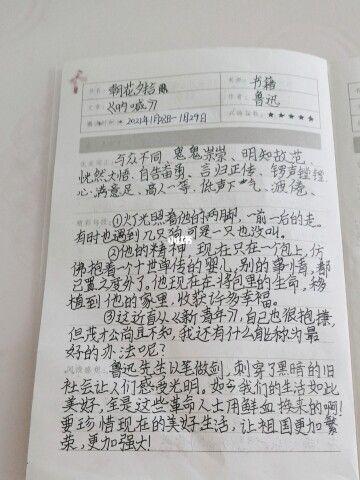 书名: 朝花夕拾 类别: 书籍
文章: 《呐喊》 作者: 鲁迅
2021年1月28日-1月29日 推荐指数: ★★★★★
与众不同、鬼鬼祟祟、明知故犯、
恍然大悟、自告奋勇、言归正传、锣声镗镗
心满意足、高人一等、低声下气、疲倦、
精彩句段: ①灯光照着他的两脚,一前一后的走。
有时也遇到几只狗,可是一只也没叫。
②他的精神,现在只在一个包上,仿
佛抱着一个十世单传的婴儿,别的事情,都
已置之度外了。他现在在将包里的生命,移
植到他的家里,收获许多幸福。
③这近真从《新青年》,自己也很抱
但茂才公尚且不知,我还有什么能称为最
好的办法呢?
鲁迅先生以笔做剑,刺穿了黑暗的旧
社会让人们感受光明。如今我们的生活如此
美好,全是这些革命人士用鲜血换来的啊!
要珍惜现在的美好生活,让祖国更加繁
荣,更加强大!